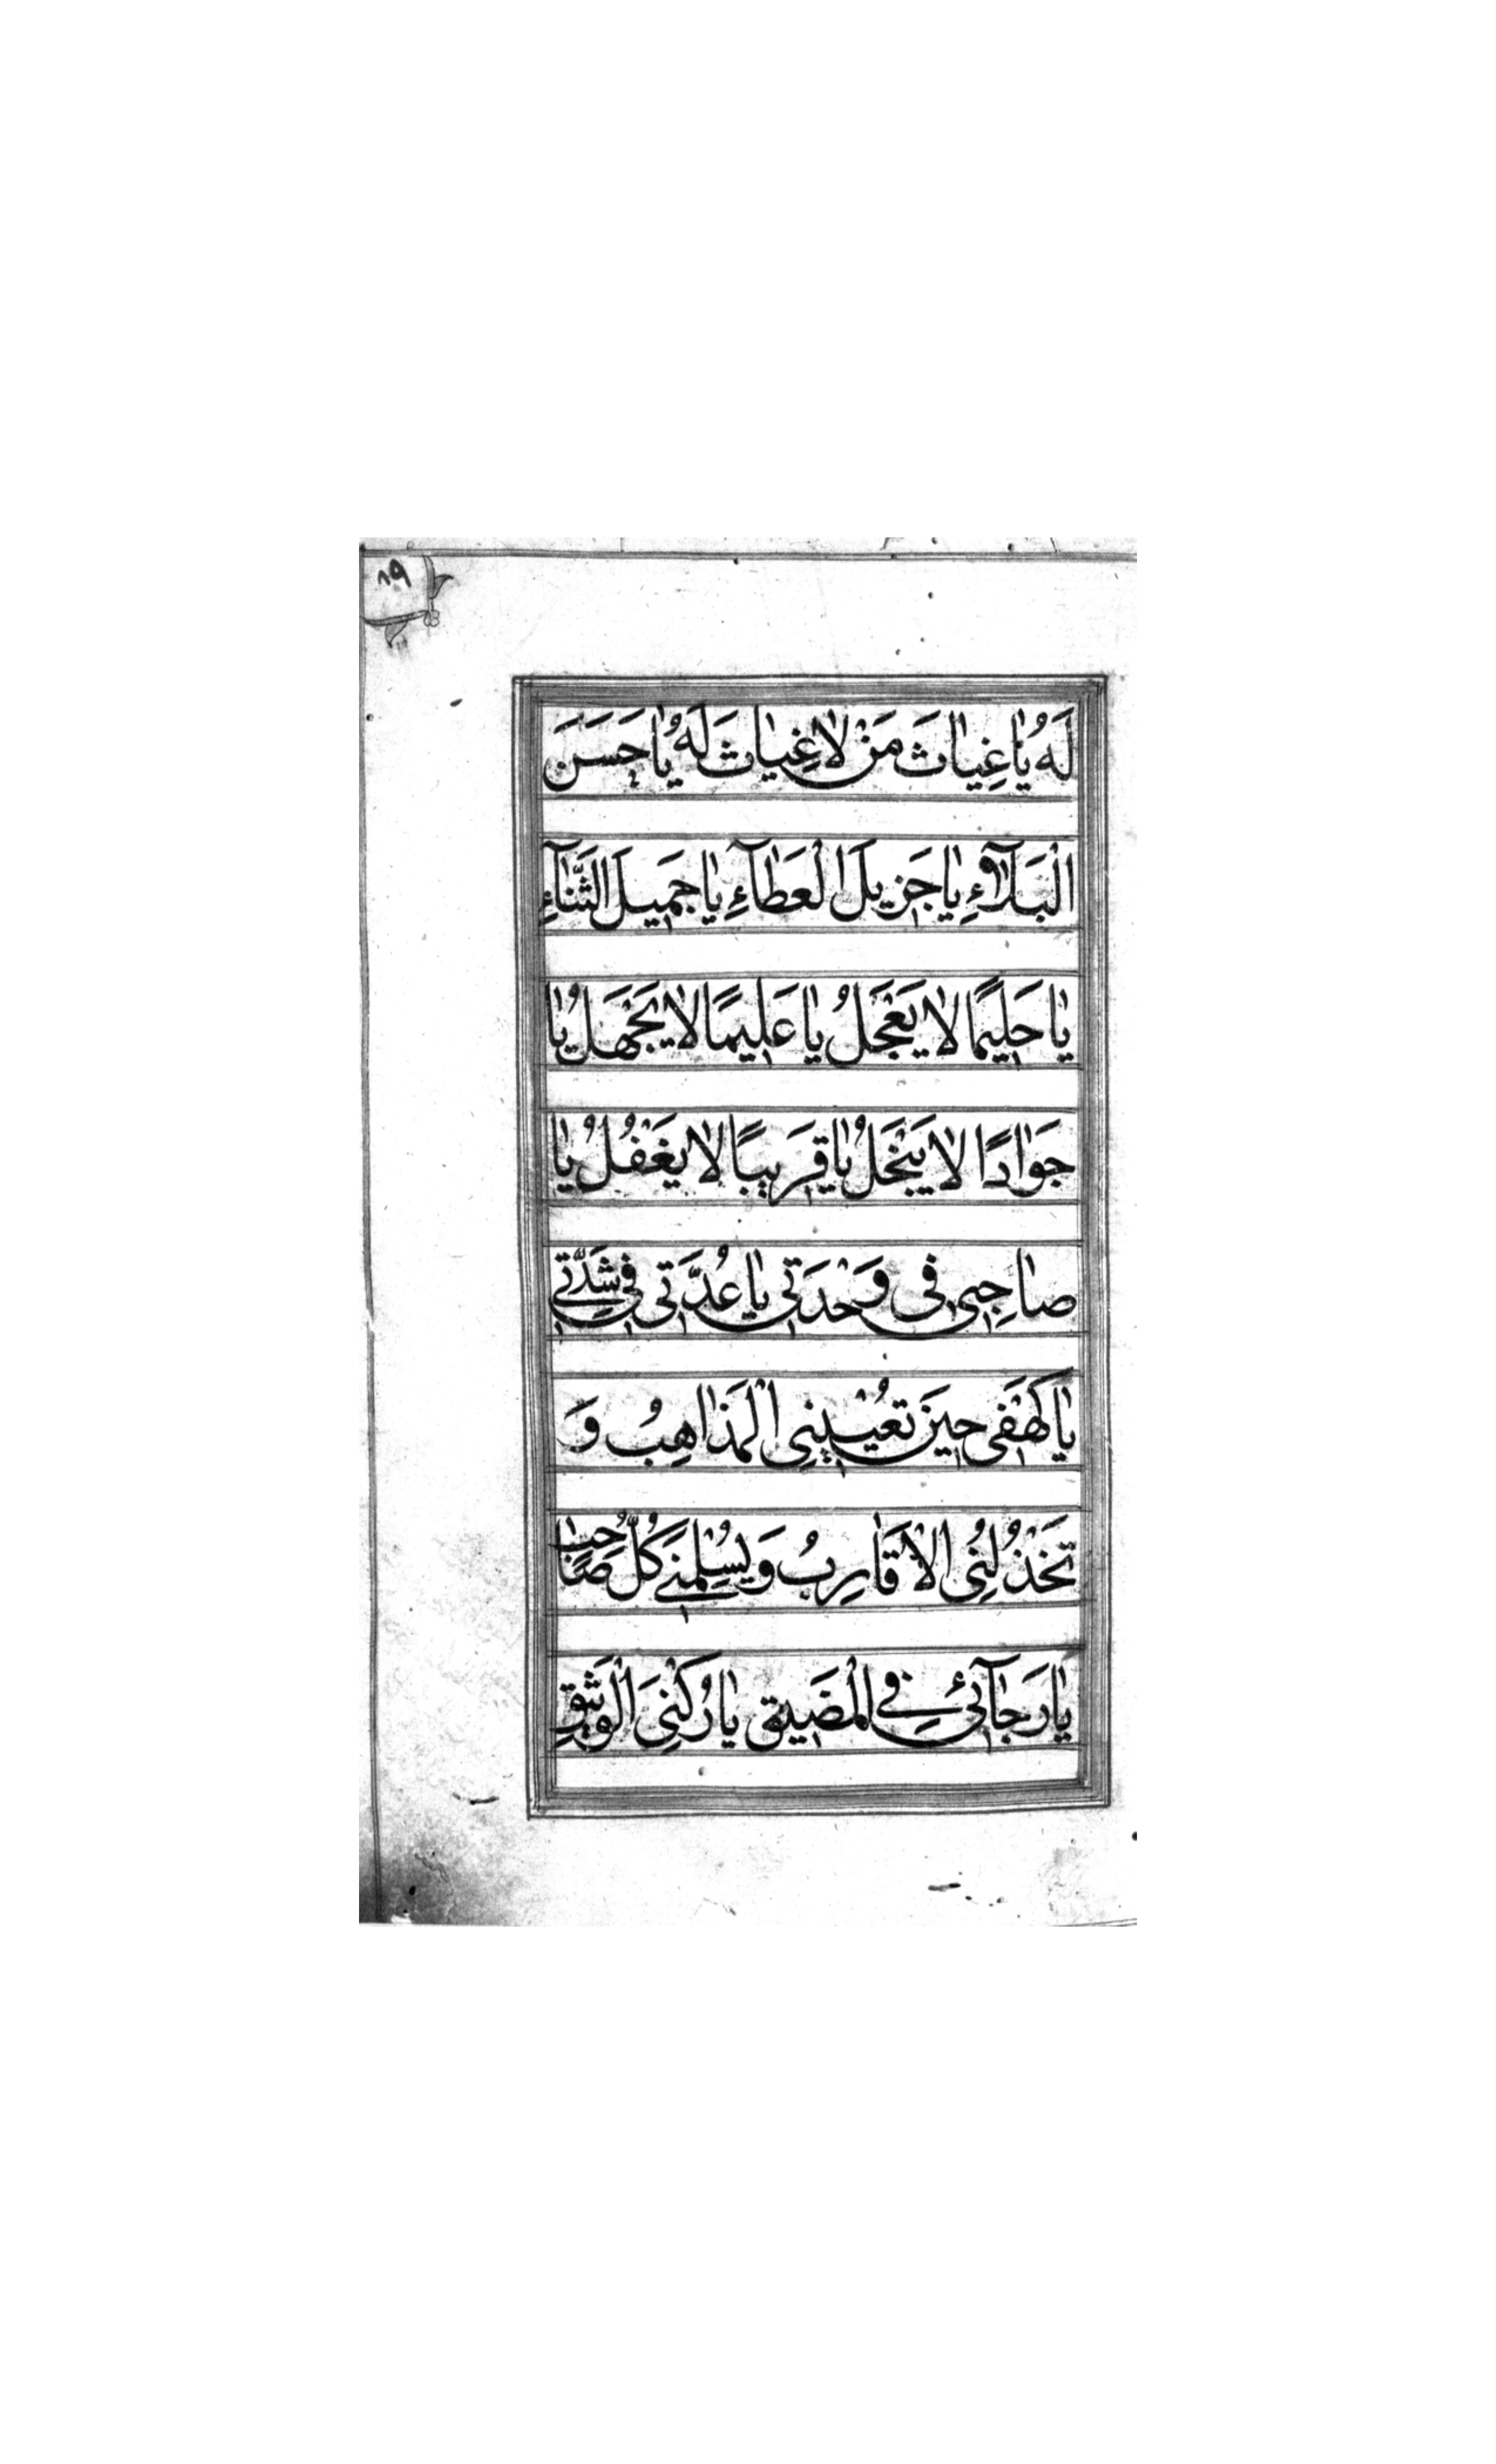 ٨٩
لَهُ يٰا غِيٰاثَ مَنْ لاٰ غِيٰاثَ لَهُ يٰا حَسَنَ
الْبَلآءِ يٰا جَزيلَ الْعَطآءِ يٰا جَميلَ الثَّنآءِ
يٰا حَليمًا لاٰ يَعْجَلُ يٰا عَليمًا لاٰ يَجْهَلُ يٰا
جَوٰادًا لاٰ يَبْخَلُ يٰا قَريبًا لاٰ يَغْفُلُ يٰا
صٰاحِبى فى وَحْدَتى يٰا عُدَّتى فى شِدَّتى
يٰا كَهْفى حينَ تُعْيينِى الْمَذٰاهِبُ وَ
تَخْذُلُنِى الْاَقٰارِبُ وَ يُسْلِمُنى كُلُّ صٰاحِبٍ
يٰا رَجآئى فِى الْمَضيقِ يٰا رُكْنِىَ الْوَثيقِ